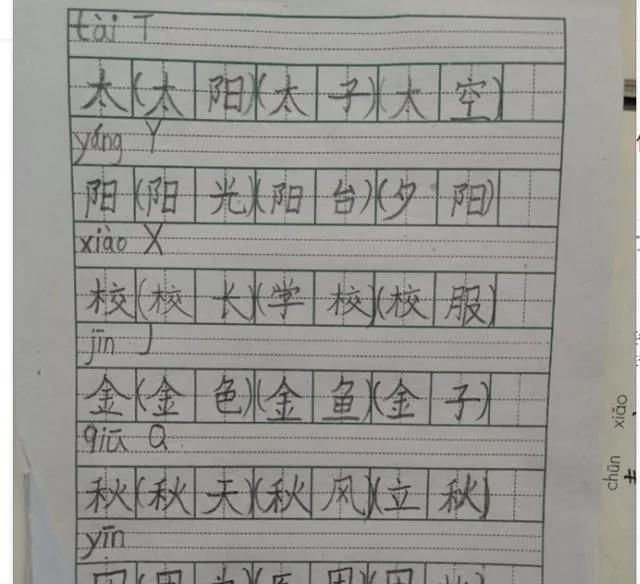 tài T
太(太阳)(太子)(太空)
yáng Y
阳(阳光)(阳台)(夕阳)
xiào X
校(校长)(学校)(校服)
jīn J
金(金色)(金鱼)(金子)
qiū Q
秋(秋天)(秋风)(立秋)
yīn
chūn xiǎo